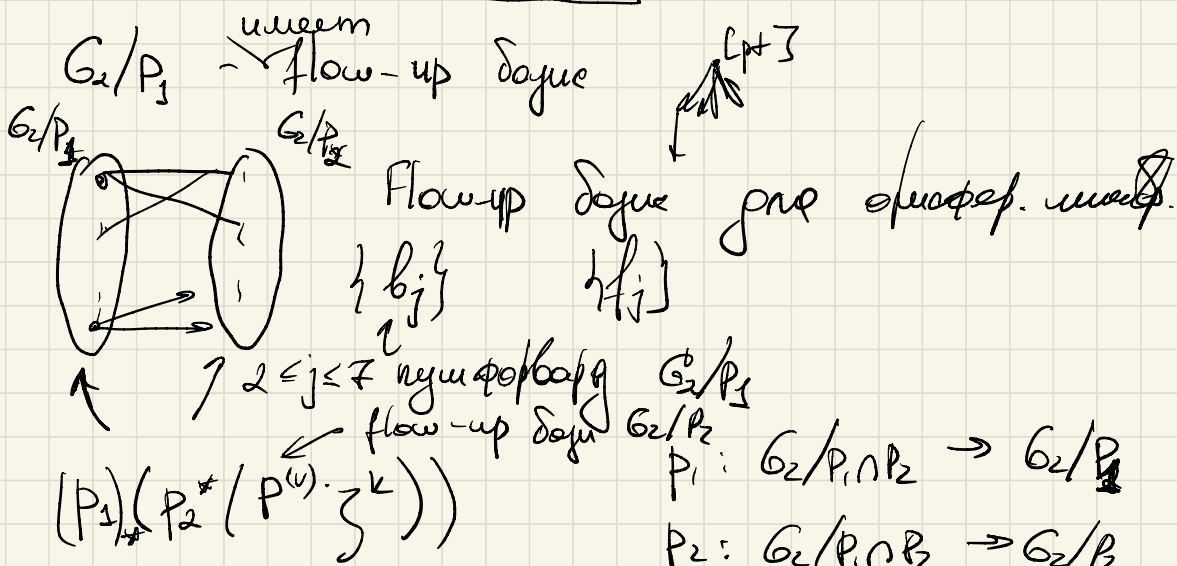 имеет
G₂/P₁ - flow-up базис
[pt]
G₂/P₁ G₂/P₂
Flow-up базис для
{b_j} {f_j}
2 ≤ j ≤ 7 пушфорвард G₂/P₁
flow-up базис G₂/P₂
(P₁)_*(P₂^*(P^{(v)}·ζ^k))
P₁: G₂/P₁∩P₂ → G₂/P₁
P₂: G₂/P₁∩P₂ → G₂/P₂